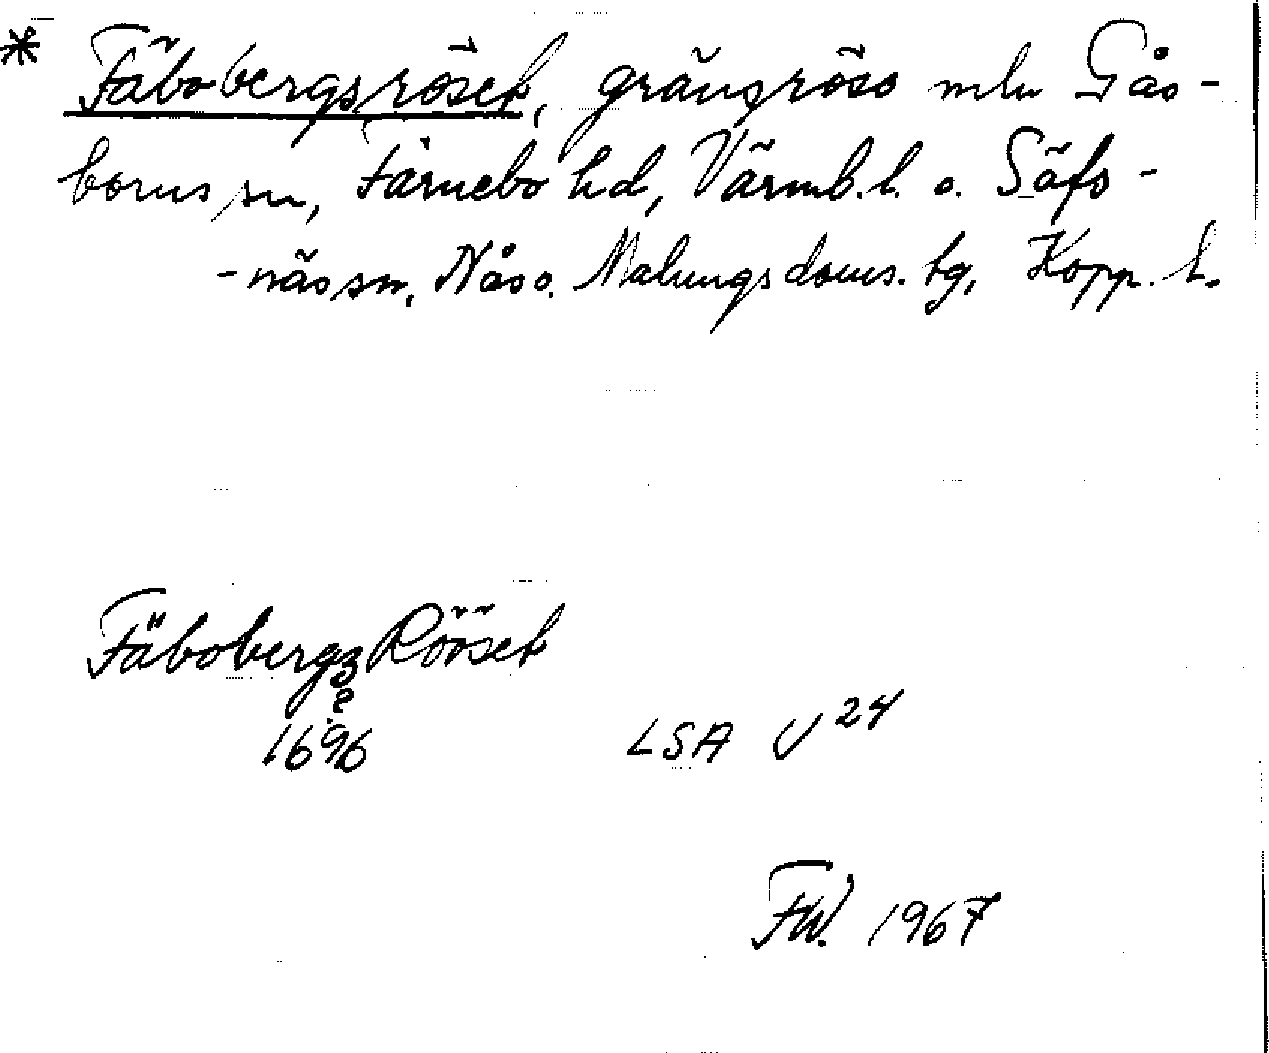 * Fäbobergsröset, gränsröse mln Gås-
borns sn, Färnebo hd, Värml. l. o. Säfs-
-näs sn, Nås o. Malungs doms. tg, Kopp. l.
Fäbobergz Rööset
?
1696 LSA V 24
FW. 1967